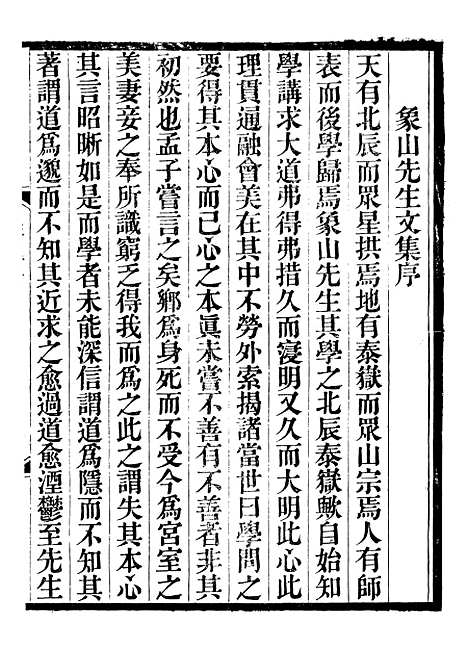 象山先生文集序
天有北辰而眾星拱焉地有泰嶽而眾山宗焉人有師
表而後學歸焉象山先生其學之北辰泰嶽歟自始知
學講求大道弗得弗措久而寖明又久而大明此心此
理貫通融會美在其中不勞外索揭諸當世曰學問之
要得其本心而已心之本真未嘗不善有不善者非其
初然也孟子嘗言之矣鄉為身死而不受今為宮室之
美妻妾之奉所識窮乏得我而為之此之謂失其本心
其言昭晰如是而學者未能深信謂道為隱而不知其
著謂道為邈而不知其近求之愈過道愈湮鬱至先生